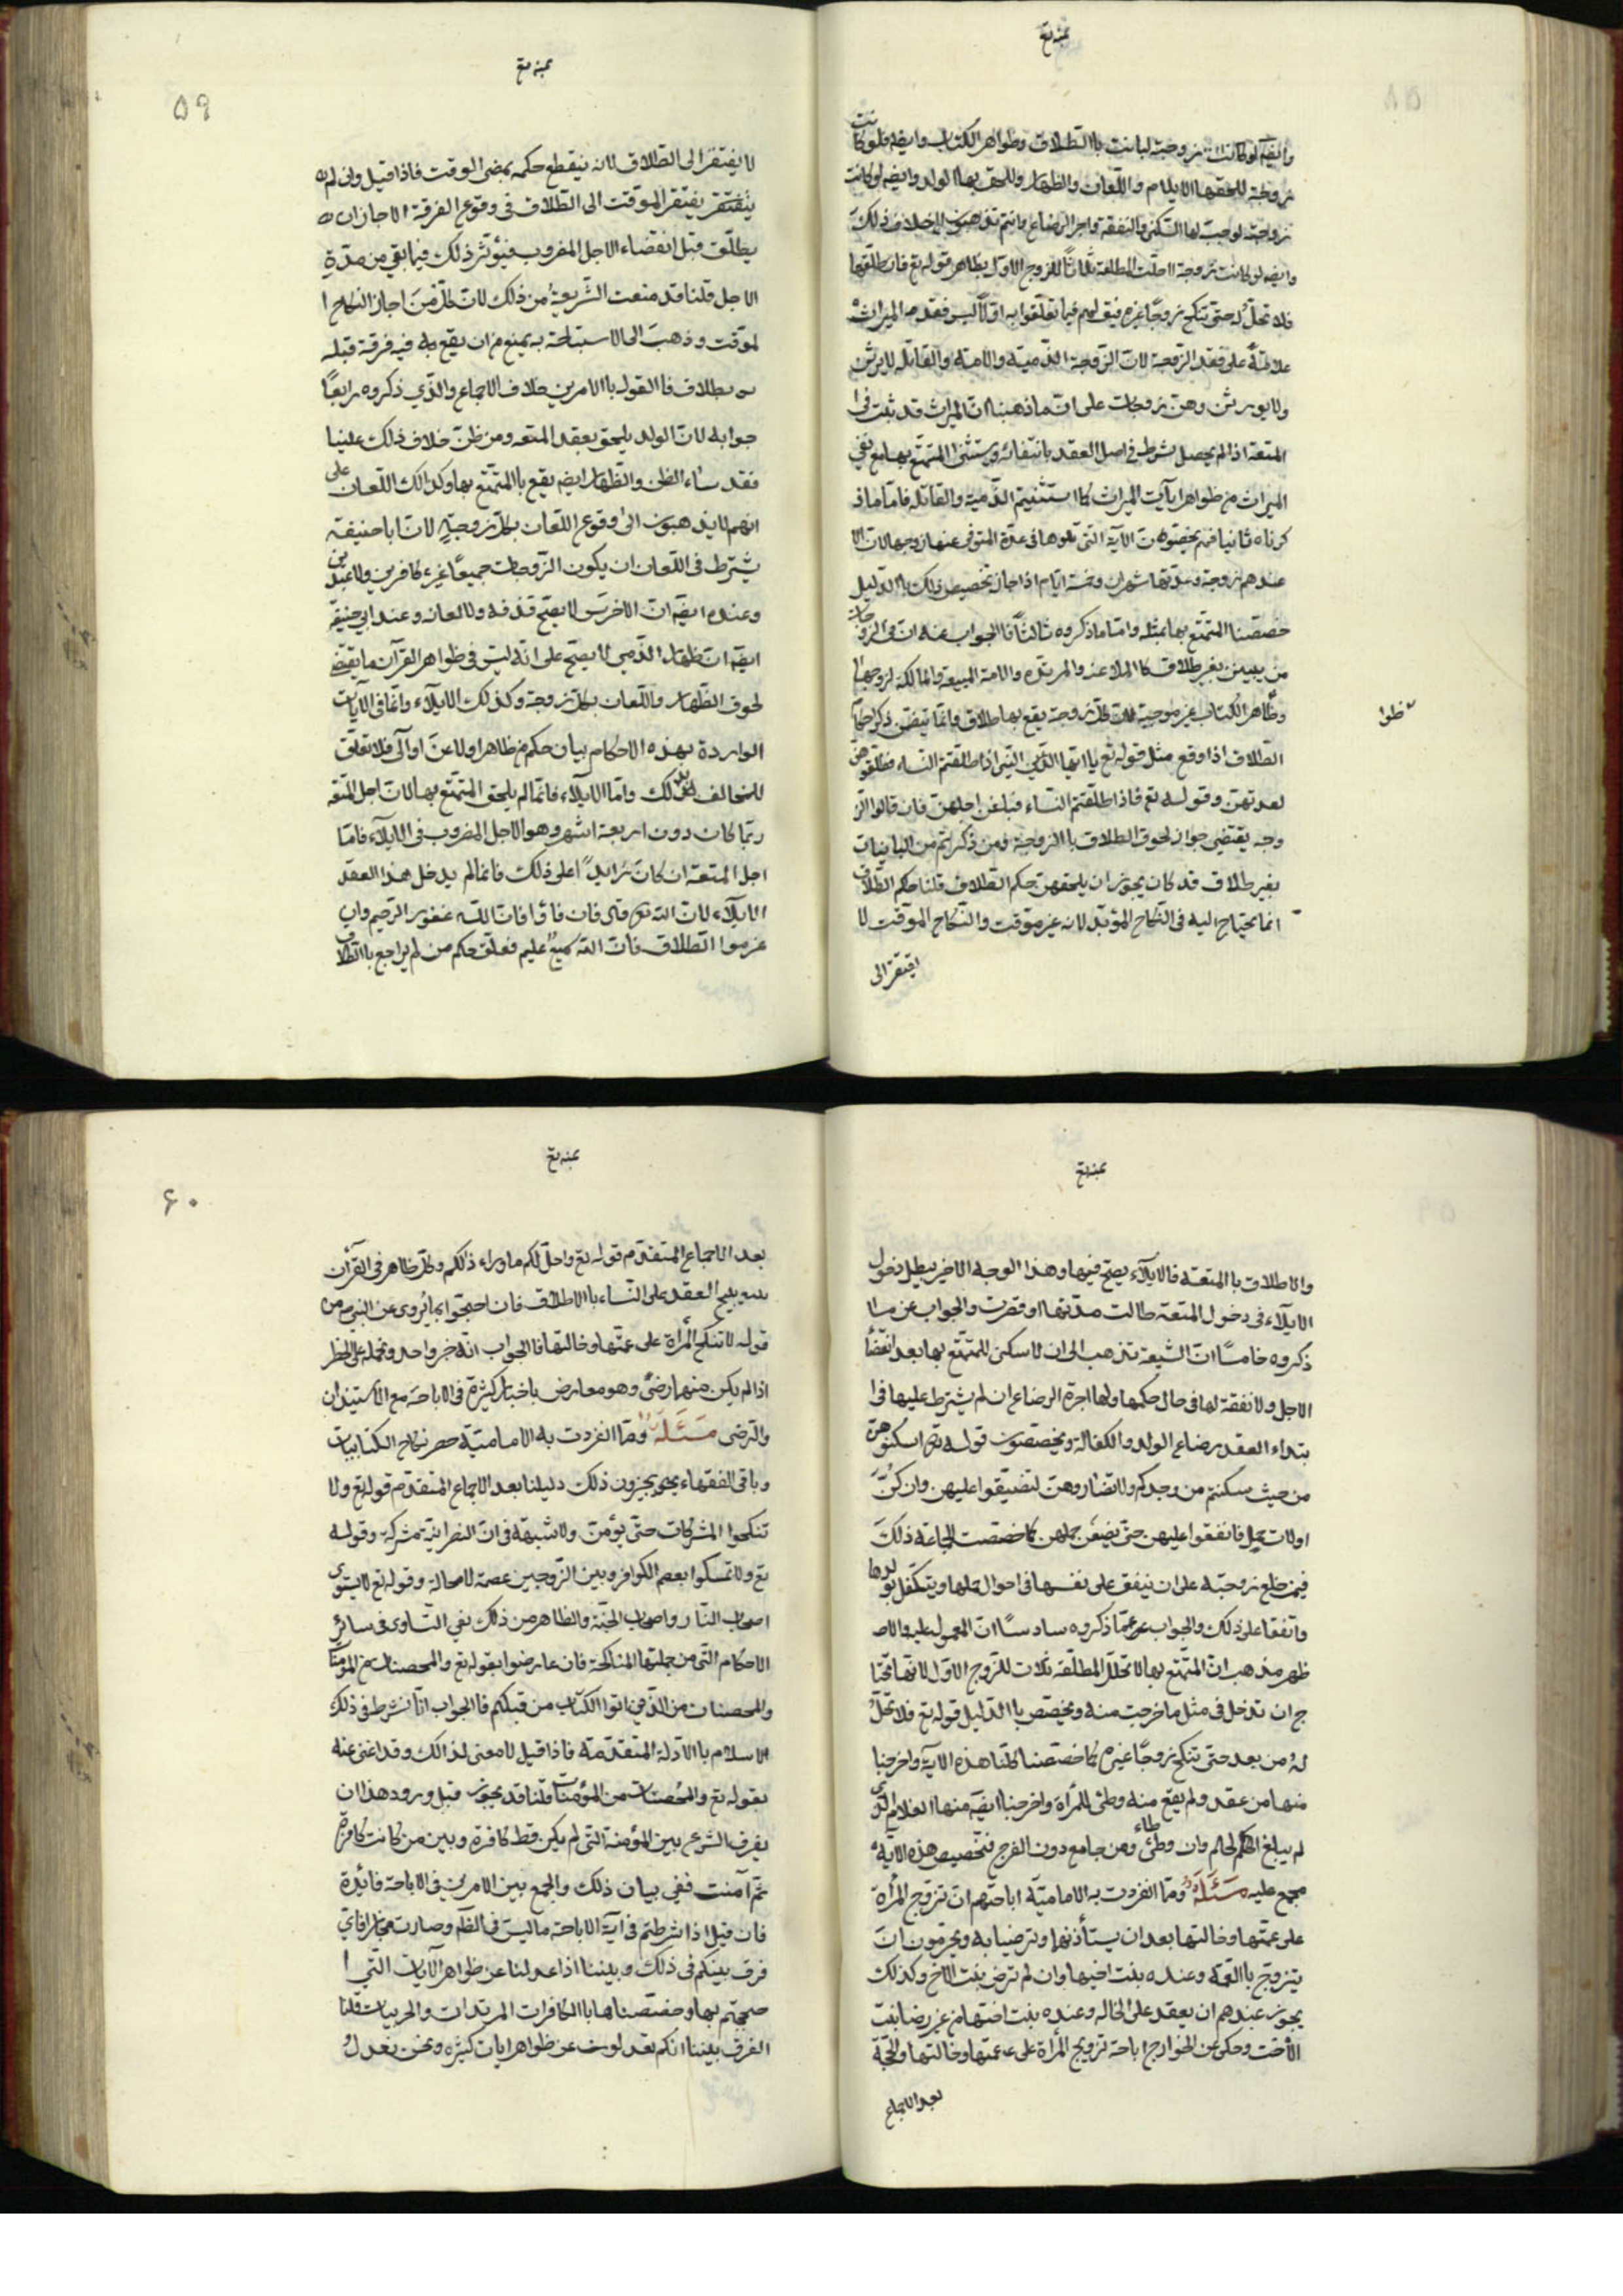 وايضا لو كانت زوجته لبانت بالطلاق وظواهر الكتاب وايضا فلو كانت
زوجة للحقها الايلاء واللعان والظهار وللحق بها الولد وايضا لو كانت
زوجة لوجبت لها السكنى والنفقة واجر الرضاع وانتم تذهبون الى خلاف ذلك
وايضا لو كانت زوجة لاحلت المطلقة ثلاثا للزوج الاول بظاهر قوله تع فان طلقها
فلا تحل له حتى تنكح زوجا غيره فيق لهم فيما تعلقوا به اولا ليس فقد الميراث
علامة على فقد الزوجة لان الزوجة الذمية والامة والقاتلة لا يرثن
ولا يورثن وهن زوجات على ان مذهبنا ان الميراث قد ثبت في ا
المتعة اذا لم يحصل شرط في اصل العقد بانتفائه ويستثنى المتمتع بها مع نفي
الميراث من ظواهر ايآت الميراث كما استثنيتم الذمية والقاتلة فاما ما ذ
كرناه ثانيا فهم يخصون الآية التي تلوها في عدة المتوفى عنها زوجها لان الا
عندهم زوجة وعدتها شهران وخمسة ايام اذا جاز تخصيص ذلك باالدليل
خصصنا المتمتع بها بمثله واما ما ذكروه ثالثا فاالجواب عنه ان في الزوجات
من يبين بغير طلاق كا الملاعنة والمرتدة والامة المبيعة والمالكة لزوجها
وظاهر الكتاب غير موجبة لان كل زوجة يقع بها طلاق وانما يتضمن ذكر احكام
الطلاق اذا وقع مثل قوله تع يا ايها النبي اذا طلقتم النساء فطلقوهن
لعدتهن وقوله تع فاذا طلقتم النساء فبلغن اجلهن فان قالوا الز
وجه يقتضي جواز لحوق الطلاق باالزوجة ومن ذكرتم من البائنات
بغير طلاق قد كان يجوز ان يلحقهن حكم الطلاق قلنا حكم الطلاق
انما يحتاج اليه في النكاح المؤبد لانه غير موقت والنكاح الموقت لا
يفتقر الى
٥٩
لا يفتقر الى الطلاق لانه ينقطع حكمه بمضى الوقت فاذا قيل وان لم
يفتقر الموقت الى الطلاق في وقوع الفرقة الا جاز ان
يطلق قبل انقضاء الاجل المضروب فيؤثر ذلك فيما بقي من مدة
الاجل قلنا قد منعت الشريعة من ذلك لان كل من اجاز النكاح ا
لموقت وذهب الى الاستباحة به يمنع من ان يقع به فيه فرقة قبله
بطلاق فاالقول باالامرين خلاف الاجماع والذي ذكروه رابعا
جوابه لان الولد يلحق بعقد المتعه ومن ظن خلاف ذلك علينا
فقد ساء الظن والظهار ايضا يقع باالمتمتع بها وكذالك اللعان على
انهم لا يذهبون الى وقوع اللعان بكل زوجة لان ابا حنيفة
يشترط في اللعان ان يكون الزوجات جميعا غير كافرين ولا عبدين
وعنده ايضا ان الاخرس لا يصح قذفه ولا لعانه وعند ابي حنيفة
ايضا ان ظهار الذمي لا يصح على انه ليس في ظواهر القرآن ما يقتضي
لحوق الظهار واللعان بكل زوجة وكذلك الايلاء وانما في الآيات
الواردة بهذه الاحكام بيان حكم من ظاهر او لاعن او آلى فلا تعلق
للمخالف بذلك واما الايلاء فانما لم يلحق المتمتع بها لان اجل المتعه
ربما كان دون اربعة اشهر وهو الاجل المضروب في الايلاء فاما
اجل المتعة ان كان زايدا على ذلك فانما لم يدخل هذا العقد
الايلاء لان الله تع قال فان فاؤا فان الله غفور الرحيم وان
عزموا الطلاق فان الله سميع عليم فعلق حكم من لم يراجع باالطلاق
والاطلاق باالمتعة فالايلاء يصح فيها وهذا الوجه الاخير يبطل دخول
الايلاء في دخول المتعة طالت مدتها او قصرت والجواب عن ما
ذكروه خامسا ان الشيعة تذهب الى ان لا سكنى للمتمتع بها بعد انقضا
الاجل ولا نفقة لها في حال حكمها ولها اجرة الرضاع ان لم يشترط عليها في ا
بتداء العقد رضاع الولد والكفالة ويخصصون قوله تع اسكنوهن
من حيث سكنتم من وجدكم ولا تضاروهن لتضيقوا عليهن وان كن
اولات حمل فانفقوا عليهن حتى يضعن حملهن كما خصصت الجماعة ذلك
فيمن خلع زوجته على ان ينفق على نفسها في احوال حملها ويتكفل بولدها
واتفقا على ذلك والجواب عما ذكروه سادسا ان المعمول عليه والاـ
ظهر مذهب ان المتمتع بها لا تحلل المطلقة ثلاث للزوج الاول لانها تحتا
ج ان تدخل في مثل ما خرجت منه ويخصص باالدليل قوله تع فلا تحل
له من بعد حتى تنكح زوجا غيره كما خصصنا كلنا هذه الآية واخرجنا
منها من عقد ولم يقع منه وطئ للمرأة واخرجنا ايضا منها الغلام الذي
لم يبلغ الحلم وان وطئ ومن جامع دون الفرج فتخصيص هذه الاية
مجمع عليه مسئلة ومما انفردت به الامامية اباحتهم ان تزوج المرأة
على عمتها وخالتها بعد ان يستأذنها وترضيا به ويحرمون ان
يتزوج باالعمة وعنده بنت اخيها وان لم ترض بنت الاخ وكذلك
يجوز عندهم ان يعقد على الخاله وعنده بنت اختها من غير رضا بنت
الاخت وحكى عن الخوارج اباحة تزويج المرأة على عمتها وخالتها والحجة
بعد الاجماع
٦٠
بعد الاجماع المتقدم قوله تع واحل لكم ما وراء ذالكم وكل ظاهر في القرآن
يبيح العقد على النساء باالاطلاق فان احتجوا بما يروى عن النبي ص من
قوله لا تنكح المرأة على عمتها وخالتها فاالجواب انه خبر واحد ونحمله على الحظر
اذا لم يكن منهما رضى وهو معارض باخبار كثيرة في الاباحة مع الاستيذان
والترضى مسئلة ومما انفردت به الامامية حصر نكاح الكتابيات
وباقي الفقهاء يجيزون ذلك دليلنا بعد الاجماع المتقدم قوله تع ولا
تنكحوا المشركات حتى يؤمن ولا شبهة في ان النصرانية مشركة وقوله
تع ولا تمسكوا بعصم الكوافر وبين الزوجين عصمة لا محالة وقوله تع لا يستوى
اصحاب النار واصحاب الجنة والظاهر من ذلك نفي التساوى في سائر
الاحكام التي من جملتها المناكحة فان عارضوا بقوله تع والمحصنات من المؤمنات
والمحصنات من الذين اتوا الكتاب من قبلكم فاالجواب انا نشرط في ذلك
الاسلام باالادلة المتقدمة فاذا قيل لا معنى لذالك وقد اغنى عنه
بقوله تع والمحصنات من المؤمنات قلنا قد يجوز قبل ورود هذا ان
يفرق الشرع بين المؤمنة التي لم يكن قط كافرة وبين من كانت كافرة
ثم آمنت ففي بيان ذلك والجمع بين الامرين في الاباحة فائدة
فان قيل اذا شرطتم في آية الاباحة ما ليس في الظاهر وصارت مجازا فاي
فرق بينكم في ذلك وبيننا اذا عدلنا عن ظواهر الآيات التي ا
حتججتم بها وخصصناها باالكافرات المرتدات والحربيات قلنا
الفرق بيننا انكم تعدلون عن ظواهر ايات كثيره ونحن نعدل